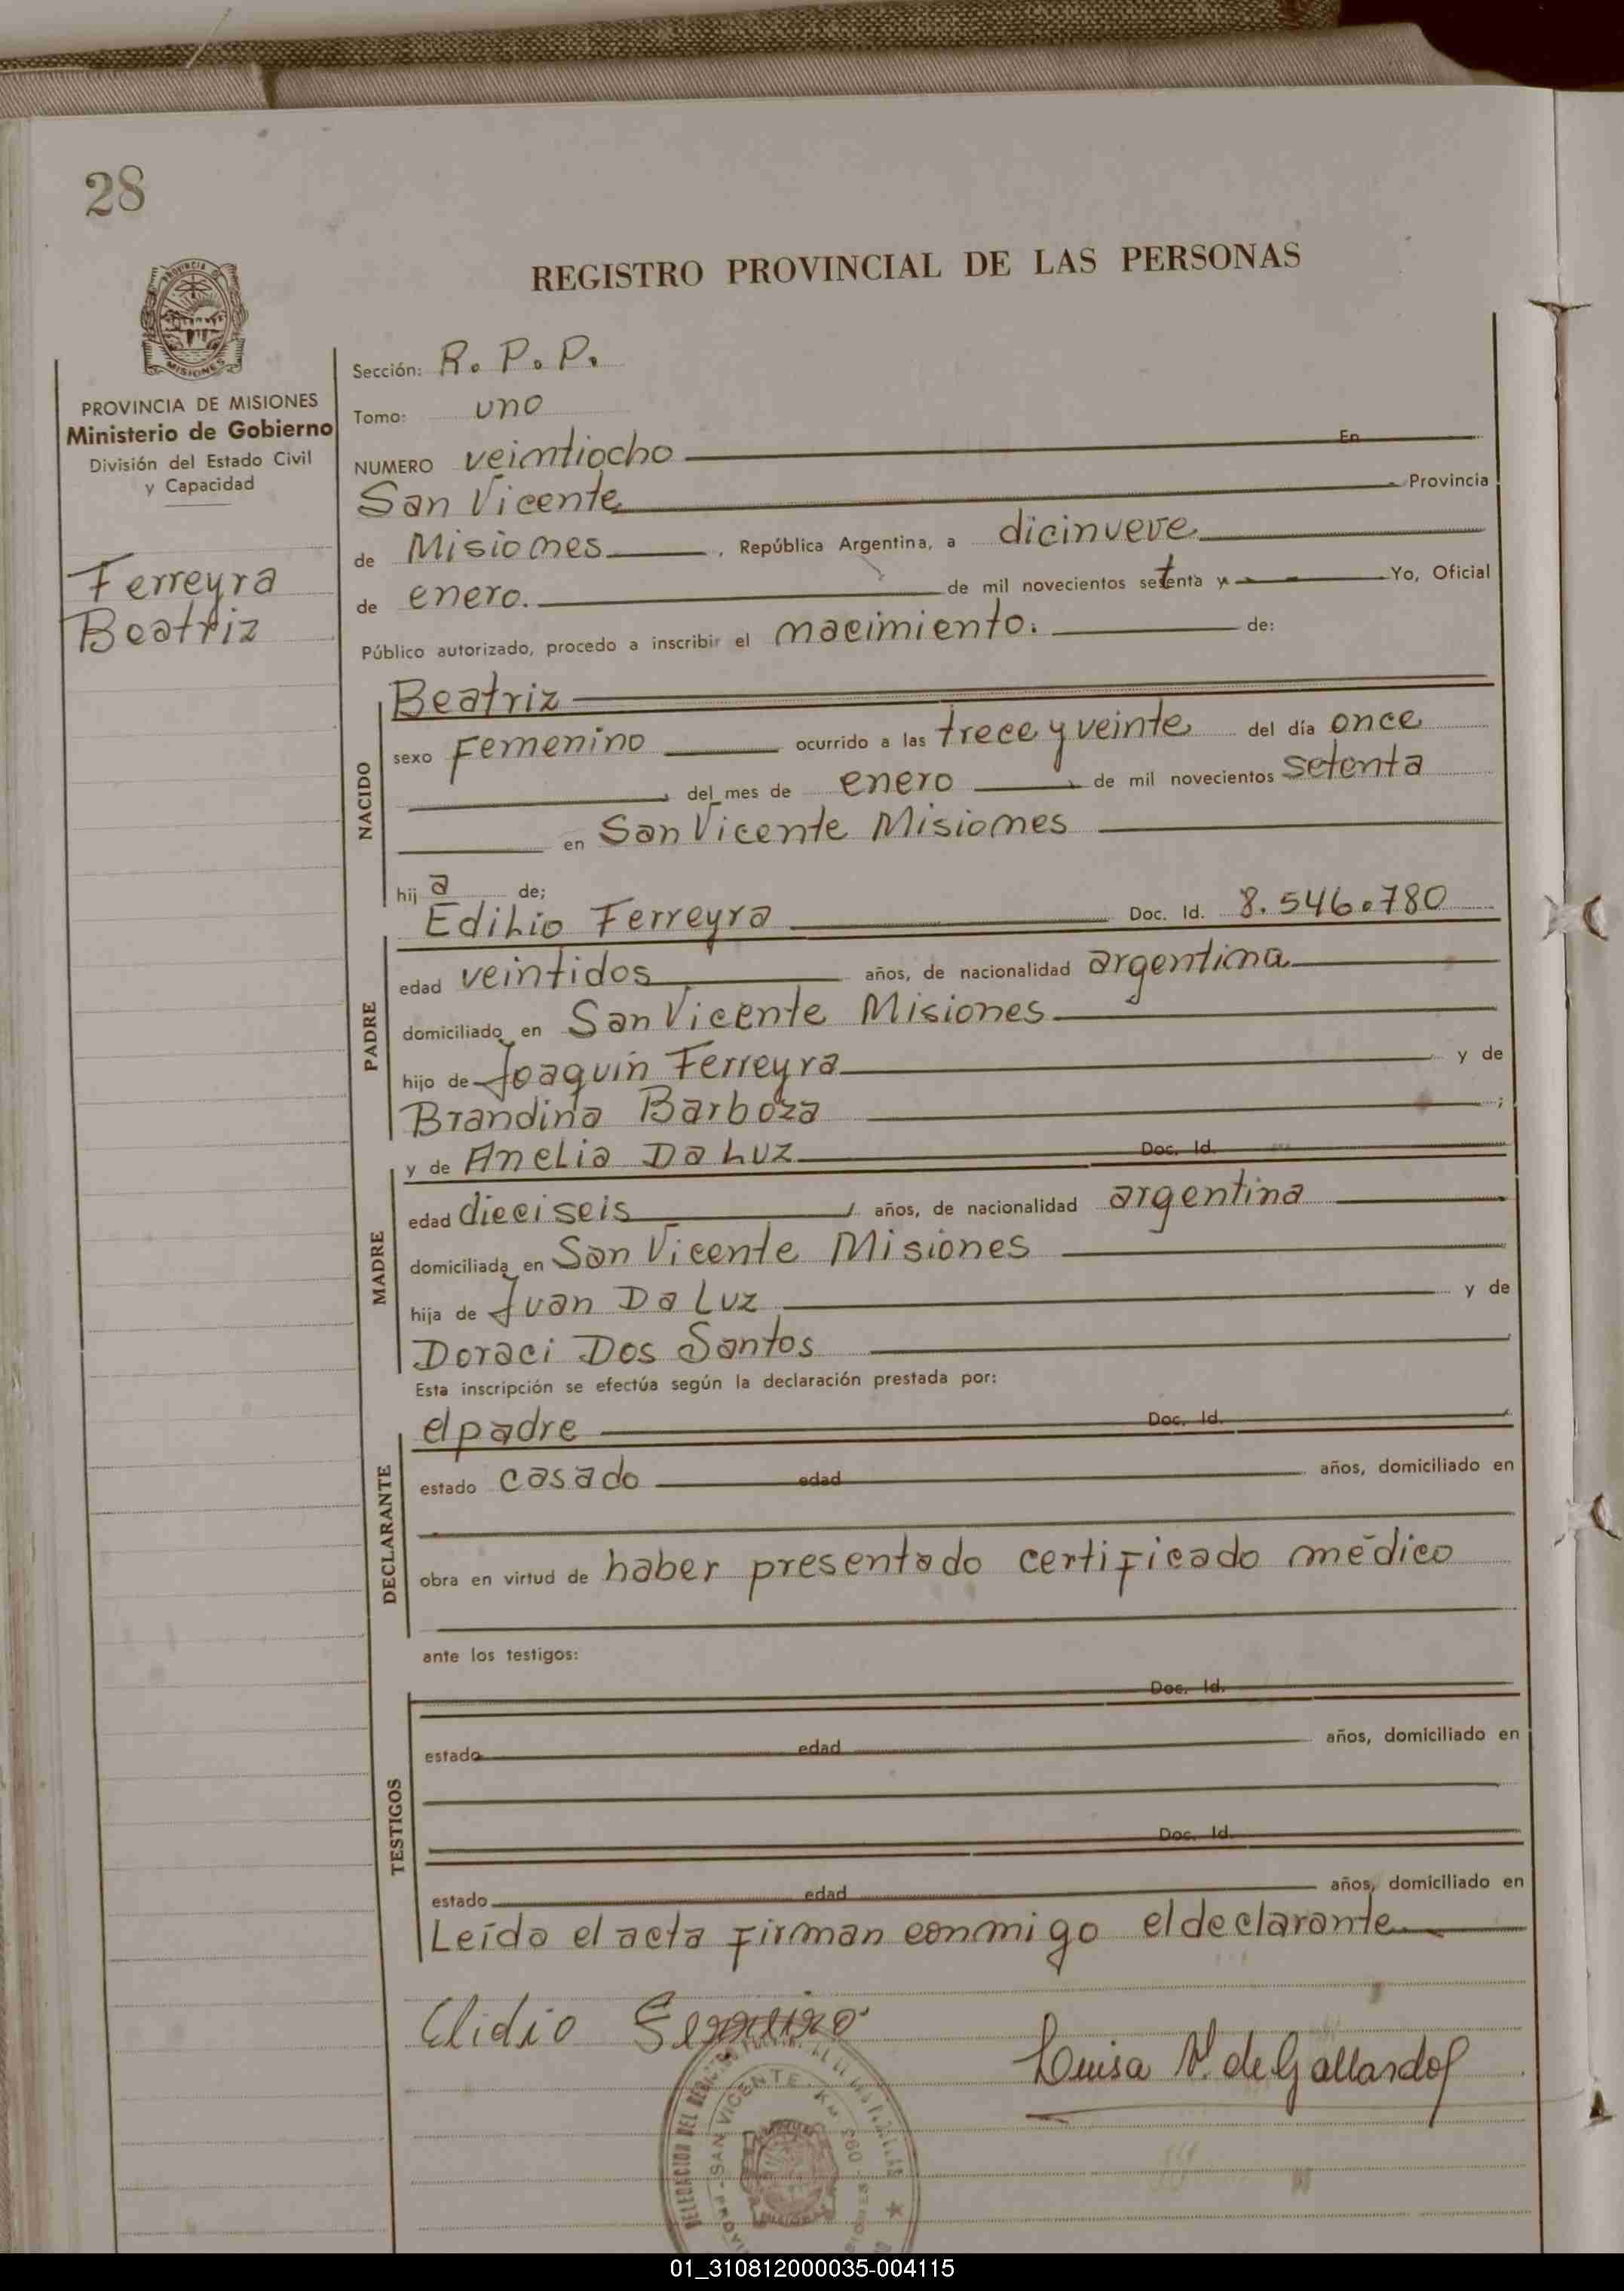 28
REGISTRO PROVINCIAL DE LAS PERSONAS
PROVINCIA DE
MISIONES
PROVINCIA DE MISIONES
Ministerio de Gobierno
División del Estado Civil
y Capacidad
Ferreyra
Beatriz
Sección: R. P. P.
Tomo: uno
NUMERO veintiocho En
San Vicente Provincia
de Misiones, República Argentina, a dicinueve
de enero. de mil novecientos setenta y Yo, Oficial
Público autorizado, procedo a inscribir el nacimiento. de:
NACIDO
Beatriz
sexo Femenino ocurrido a las trece y veinte del día once
del mes de enero de mil novecientos setenta
en San Vicente Misiones
hij a de;
PADRE
Edilio Ferreyra Doc. Id. 8.546.780
edad veintidos años, de nacionalidad argentina
domiciliado en San Vicente Misiones
hijo de Joaquín Ferreyra y de
Brandina Barboza ;
MADRE
y de Anelia Da Luz Doc. Id.
edad dieciseis años, de nacionalidad argentina
domiciliada en San Vicente Misiones
hija de Juan Da Luz y de
Doraci Dos Santos
Esta inscripción se efectúa según la declaración prestada por:
DECLARANTE
el padre Doc. Id.
estado casado edad años, domiciliado en
obra en virtud de haber presentado certificado médico
ante los testigos:
TESTIGOS
Doc. Id.
estado edad años, domiciliado en
Doc. Id.
estado edad años, domiciliado en
Leído el acta firman conmigo el declarante
Elidio
Luisa V. de Gallardo
DELEGACION DEL REGISTRO
SAN VICENTE - Km
01_310812000035-004115